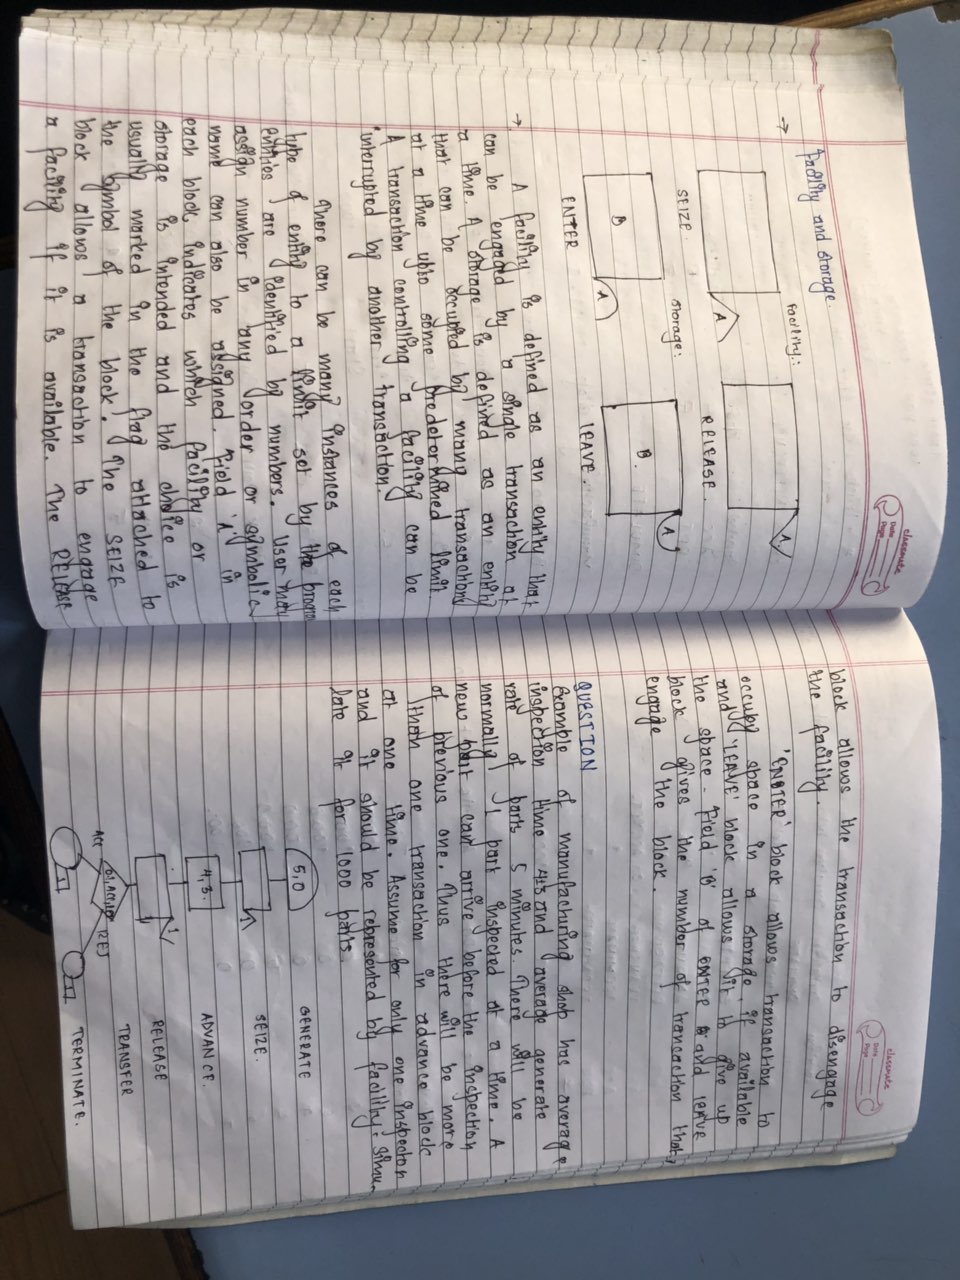 classmate
Date
Page
Facility and storage.
→
Facility:
A
A
SEIZE.
RELEASE.
storage:
B
A
B.
A
ENTER
LEAVE.
→ A facility is defined as an entity that
can be engaged by a single transaction at
a time. A storage is defined as an entity
that can be occupied by many transactions
at a time upto some predetermined limit.
A transaction controlling a facility can be
interrupted by another transaction.
There can be many instances of each
type of entity to a limit set by the
entities are identified by numbers. User may
assign number in any order or symbolic
name can also be assigned. Field 'A' in
each block indicates which facility or
storage is intended and the choice is
usually marked in the flag attached to
the symbol of the block. The SEIZE
block allows a transaction to engage
a facility if it is available. The RELEASE
classmate
Date
Page
block allows the transaction to disengage
the facility.
'ENTER' block allows transaction to
occupy space in a storage, if available
and 'LEAVE' block allows it to give up
the space. Field 'B' of ENTER and LEAVE
block gives the number of transaction that
engage the block.
QUESTION
Example of manufacturing shop has average
inspection time 4±3 and average generate
rate of parts 5 minutes. There will be
normally 1 part inspected at a time. A
new part can arrive before the inspection
of previous one. Thus there will be more
than one transaction in advance block
at one time. Assume for only one inspector
and it should be represented by facility. Simu
late it for 1000 parts.
5,0
GENERATE
SEIZE.
4,3.
ADVANCE.
1
RELEASE
ACC
REJ
TRANSFER
1
1
TERMINATE.